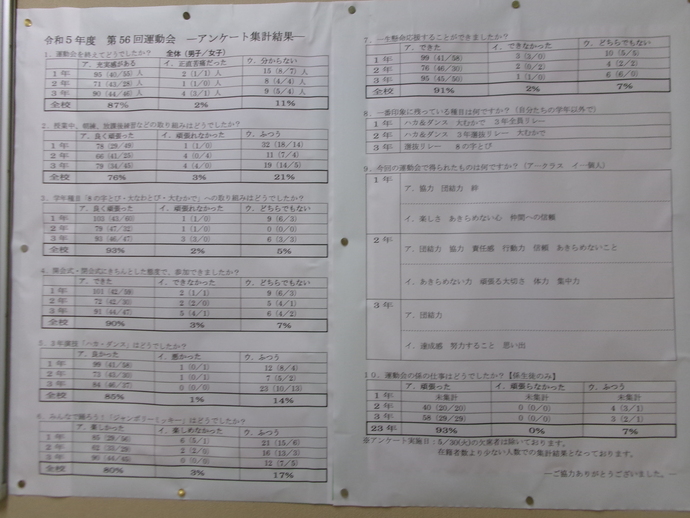 令和５年度 第56回運動会 ―アンケート集計結果―
１、運動会を終えてどうでしたか？ 全体（男子／女子）
ア．充実感がある イ．正直苦痛だった ウ．分からない
１年 95（40／55）人 2（1／1）人 15（8／7）人
２年 71（43／28）人 1（1／0）人 8（4／4）人
３年 90（44／46）人 4（3／1）人 9（5／4）人
全校 87％ 2％ 11％
２、授業中、朝練、放課後練習などの取り組みはどうでしたか？
ア．良く頑張った イ．頑張れなかった ウ．ふつう
１年 78（29／49） 1（1／0） 32（18／14）
２年 66（41／25） 4（0／4） 11（7／4）
３年 79（34／45） 4（4／0） 19（14／5）
全校 76％ 3％ 21％
３、学年種目「８の字とび・大なわとび・大むかで」への取り組みはどうでしたか？
ア．良く頑張った イ．頑張れなかった ウ．どちらでもない
１年 103（43／60） 1（1／0） 9（6／3）
２年 79（47／32） 1（1／0） 0（0／0）
３年 93（46／47） 3（3／0） 6（3／3）
全校 93％ 2％ 5％
４、開会式・閉会式にきちんとした態度で、参加できましたか？
ア．できた イ．できなかった ウ．どちらでもない
１年 101（42／59） 2（1／1） 9（6／3）
２年 72（42／30） 2（2／0） 5（4／1）
３年 91（44／47） 5（4／1） 6（4／2）
全校 90％ 3％ 7％
５、３年演技「ハカ・ダンス」はどうでしたか？
ア．良かった イ．悪かった ウ．ふつう
１年 99（41／58） 1（0／1） 12（8／4）
２年 73（43／30） 1（0／1） 7（5／2）
３年 84（46／37） 0（0／0） 23（10／13）
全校 85％ 1％ 14％
６、みんなで踊ろう！「ジャンボリーミッキー」はどうでしたか？
ア．楽しかった イ．楽しめなかった ウ．ふつう
１年 6（5／1） 21（15／6）
２年 2（2／0） 16（13／3）
３年 90（44／46） 0（0／0） 12（7／5）
全校 80％ 3％ 17％
７、一生懸命応援することができましたか？
ア．できた イ．できなかった ウ．どちらでもない
１年 99（41／58） 3（3／0） 10（5／5）
２年 76（46／30） 2（0／2） 4（2／2）
３年 95（45／50） 1（1／0） 6（6／0）
全校 91％ 2％ 7％
８、一番印象に残っている種目は何ですか？（自分たちの学年以外で）
１年 ハカ＆ダンス 大むかで ３年全員リレー
２年 ハカ＆ダンス ３年選抜リレー 大むかで
３年 選抜リレー ８の字とび
９、今回の運動会で得られたものは何ですか？（ア―クラス イ―個人）
１年
ア．協力 団結力 絆
イ．楽しさ あきらめない心 仲間への信頼
２年
ア．団結力 協力 責任感 行動力 信頼 あきらめないこと
イ．あきらめない力 頑張る大切さ 体力 集中力
３年
ア．団結力
イ．達成感 努力すること 思い出
１０、運動会の係の仕事はどうでしたか？【係生徒のみ】
ア．頑張った イ．頑張らなかった ウ．ふつう
１年 未集計 未集計 未集計
２年 40（20／20） 0（0／0） 4（3／1）
３年 58（29／29） 0（0／0） 3（2／1）
23年 93％ 0％ 7％
※アンケート実施日：５／30(火)の欠席者は除いております。
在籍者数より少ない人数での集計結果となっております。
―ご協力ありがとうございました。―